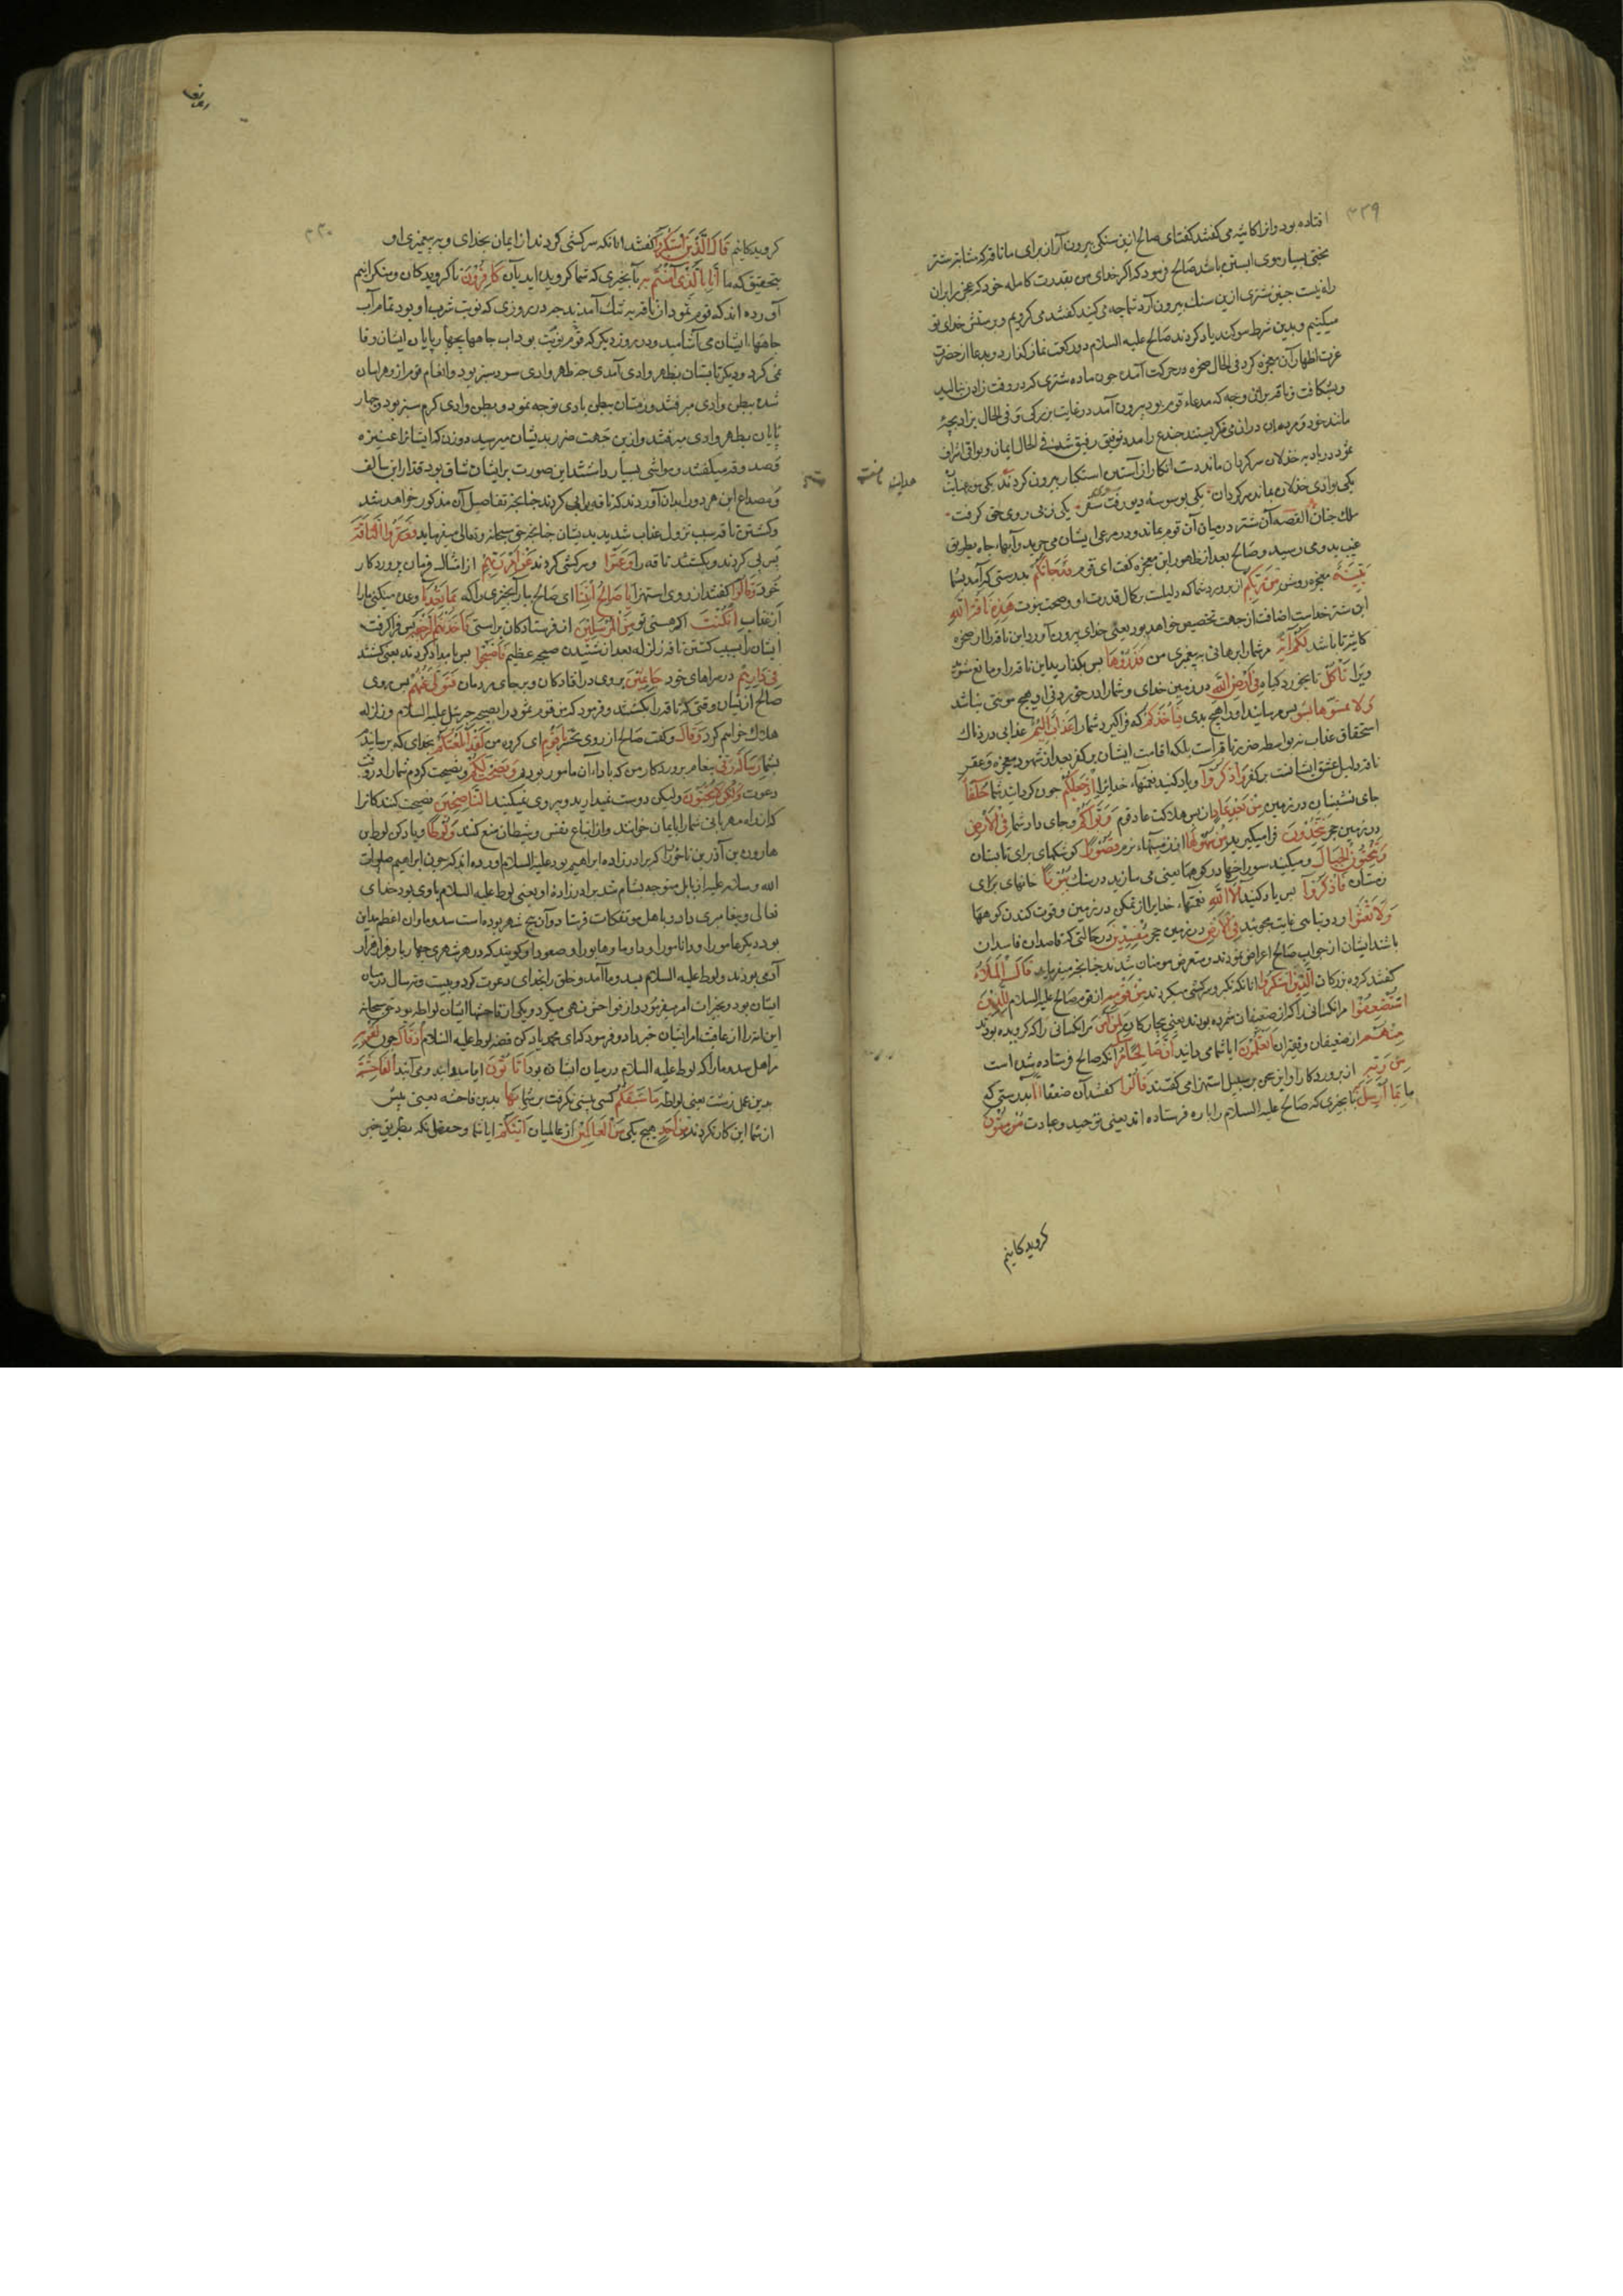 ۳۳۹
افتاده بود و انرا کاثبه می کفتند کفتند ای صالح ازین سنکی بیرون آر از برای ما ناقه که مشابه شتر
بختی بسیار موی ابستن باشد صالح فرمود که اکر خدای من بقدرت کامله خود که عجز را بران
راه نیست جنین شتری ازین سنک بیرون آرد شما چه می کنید کفتند می کرویم و پرستش خدای تو
میکنیم و بدین شرط سوکند یاد کردند صالح علیه السلام دو رکعت نماز کذارد و بدعا از حضرت
عزت اظهار آن معجزه کرد فی الحال صخره در حرکت آمده جون ماده شتری که در وقت زادن بنالید
و بشکافت و ناقه بران وجه که مدعاء قوم بود بیرون آمد در غایت بزرکی و فی الحال بزاد بجهٔ
مانند خود و مردمان دران می نکریستند جندع را مدد توفیق رفیق شده فی الحال ایمان و بواقی اشراف
ثمود در بادیه خذلان سرکردان ماندند دست انکار از آستین استکبار بیرون کردند یکی
یکی بوادی خذلان بماند سرکردان یکی بوسوسه دیو رفت یکی ز پی روی حق کرفت
ملک جنان القصه آن شتر در میان آن قوم بماند و در مرعی ایشان می جرید و آبهاء جاه بطریق
غب بدو می رسید و صالح بعد از ظهور این معجزه کفت ای قوم قَدْ جَاءَتْكُمْ بدرستی که آمد بشما
بَيِّنَةٌ معجزه روشن مِنْ رَبِّكُمْ از پروردشما که دلیلت بر کمال قدرت او و صحت نبوت هَذِهِ نَاقَةُ اللَّهِ
این شتر خداست اضافت از جهت تخصیص خواهد بود یعنی خدای بیرون آورد این ناقه را از صخره
لَكُمْ آيَةً مر شمارا برهانی به پیغمبری من فَذَرُوهَا پس بکذارید این ناقه را و مانع مشوید
ویرا تَأْكُلْ تا بخورد کیاه فِي أَرْضِ اللَّهِ در زمین خدای و شما را در خوردنی او هیچ مونتی نباشد
وَلَا تَمَسُّوهَا بِسُوءٍ و مرسانید او را هیچ بدی فَيَأْخُذَكُمْ که فراکیرد شمارا عَذَابٌ أَلِيمٌ عذابی دردناک
استحقاق عذاب نه بواسطه ضرر ناقه است بلکه اقامت ایشان بر کفر بعد از شهود معجزه و عقر
ناقه دلیل عتو ایشانست بر کفر وَاذْكُرُوا و یاد کنید نعمتهاء خدایرا إِذْ جَعَلَكُمْ جون کردانید شما خُلَفَاءَ
جای نشینان در زمین مِنْ بَعْدِ عَادٍ از پس هلاکت عاد قوم وَبَوَّأَكُمْ و جای داد شما فِي الْأَرْضِ
در زمین حجر تَتَّخِذُونَ فرا میکیرید مِنْ سُهُولِهَا از زمینهاء نرم قُصُورًا کوشکهای برای تابستان
وَتَنْحِتُونَ الْجِبَالَ و میکنید سوراخها در کوهها یعنی می سازید در سنک بُيُوتًا خانهای برای
زمستان فَاذْكُرُوا پس یاد کنید آلَاءَ اللَّهِ نعمتهاء خدایرا از تمکن در زمین و قوت کندن کوهها
وَلَا تَعْثَوْا و در تباهی غایت مجوئید فِي الْأَرْضِ در زمین حجر مُفْسِدِينَ در حالتی که قاصدان فاسدان
باشند ایشان از جواب صالح اعراض نمودند و متعرض مومنان شدند جنانجه میفرماید قَالَ الْمَلَأُ
کفتند کروه بزرکان الَّذِينَ اسْتَكْبَرُوا انانکه تکبر و سرکشی میکردند مِنْ قَوْمِهِ از قوم صالح علیه السلام لِلَّذِينَ
اسْتُضْعِفُوا مر انکسانی را که از ضعیفان شمرده بودند یعنی بیچارکان لِمَنْ آمَنَ مر انکسانی را که کرویده بودند
مِنْهُمْ از ضعیفان و فقیران أَتَعْلَمُونَ ایا شما می دانید أَنَّ صَالِحًا مُرْسَلٌ انکه صالح فرستاده شده است
مِنْ رَبِّهِ از پروردکار او این سخن بر سبیل استهزا می کفتند قَالُوا کفتند آن ضعفا إِنَّا بدرستی که
ما بِمَا أُرْسِلَ بِهِ بجیزی که صالح علیه السلام را باره فرستاده اند یعنی توحید و عبادت مُؤْمِنُونَ
کرویدکانیم
۳۴۰
کرویدکانیم قَالَ الَّذِينَ اسْتَكْبَرُوا کفتند انانکه سرکشی کردند از ایمان بخدای و به پیغمبری او
بتحقیق که ما إِنَّا بِالَّذِي آمَنْتُمْ بِهِ بآنجیزی که شما کرویده اید بآن كَافِرُونَ ناکرویدکان و منکرانیم
آورده اند که قوم ثمود از ناقه به تنک آمدند جه در روزی که نوبت شرب او بود تمام آب
جاهها ایشان می آشامید و در روز دیکر که قوم نوبت بود اب جاهها بچهار پایان ایشان وفا
نمی کرد و دیکر تابستان بظهر وادی آمدی جه ظهر وادی سرد سیر بود و انغام قوم ازو هراسان
شده ببطن وادی میرفتند و زمستان ببطن وادی توجه نمود و بطن وادی کرم سیر بود و جهار
پایان بظهر وادی میرفتند و ازین جهت ضرر بدیشان میرسید
و مصداع این هر دورا بدان آوردند که ناقه را پی کردند جنانجه تفاصیل آن مذکور خواهد شد
و کشتن ناقه سبب نزول عذاب شدید بدیشان جنانجه حق سبحانه و تعالی میفرماید فَعَقَرُوا النَّاقَةَ
پس پی کردند و بکشتند ناقه را وَعَتَوْا و سرکشی کردند عَنْ أَمْرِ رَبِّهِمْ از امتثال فرمان پروردکار
خود وَقَالُوا کفتند از روی استهزا يَا صَالِحُ ائْتِنَا ای صالح بیار آنجیزی را که بِمَا تَعِدُنَا وعده میکنی مارا
از عذاب إِنْ كُنْتَ اکر هستی تو مِنَ الْمُرْسَلِينَ از فرستادکان براستی فَأَخَذَتْهُمُ الرَّجْفَةُ پس فرا کرفت
ایشان را بسبب کشتن ناقه زلزله بعد از شنیدن صیحه عظیم فَأَصْبَحُوا پس بامداد کردند یعنی کشتند
فِي دَارِهِمْ در سراهای خود جَاثِمِينَ بر وی در افتادکان و بر جای مردمان فَتَوَلَّى عَنْهُمْ پس روی
صالح ازیشان وقتی که ناقه را بکشتند و فرمود که من قوم ثمود را بصیحه جبرئیل علیه السلام و زلزله
هلاک خواهم کرد وَقَالَ و کفت صالح از روی تحسر يَا قَوْمِ ای کروه من لَقَدْ أَبْلَغْتُكُمْ بخدای که برسانیدم
بشما رِسَالَةَ رَبِّي پیغام پروردکار من که باداء آن مامور بودم وَنَصَحْتُ لَكُمْ و نصیحت کردم شمارا در وقت
دعوت وَلَكِنْ لَا تُحِبُّونَ ولیکن دوست نمیدارید و پیروی نمیکنید النَّاصِحِينَ نصیحت کنندکانرا
که از راه مهربانی شمارا بایمان خوانند و از اتباع نفس و شیطان منع کنند وَلُوطًا و یاد کن لوط بن
هاروه بن آذر بن ناخور را که برادرزاده ابراهیم بود علیه السلام آورده اند که جون ابراهیم صلوات
الله و سلامه علیه از بابل متوجه بشام شد برادرزاده او یعنی لوط علیه السلام باوی بود خدای
تعالی ویغامبری داد و باهل موتفکات فرستاد و آن پنج شهر بوده است سدوما و ان اعظم مداین
بود دیکر عامورا
آدمی بودند و لوط علیه السلام بسدوما آمد و خلق را بخدای دعوت کرد و بیست و نه سال در میان
ایشان بود و بخیرات امر میفرمود و از فواحش نهی میکرد و یکی از فاحشهاء ایشان لواطه بود حق سبحانه
این امه را از عاقبت امر ایشان خبر داد و فرمود که ای محمد یاد کن قصه لوط علیه السلام إِذْ قَالَ جون لِقَوْمِهِ
مر اهل سدومارا که لوط علیه السلام در میان ایشان بود أَتَأْتُونَ ایا میدانید و می آیید الْفَاحِشَةَ
بدین عمل زشت یعنی لواطه مَا سَبَقَكُمْ کسی پیشی نکرفت بر شما بِهَا بدین فاحشه یعنی پیش
از شما این کار نکردند مِنْ أَحَدٍ هیچ یکی مِنَ الْعَالَمِينَ از عالمیان أَئِنَّكُمْ ایا شما